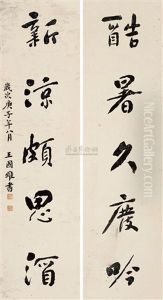 酷暑久廢吟
新涼頗思
歲次庚子年八月
王國雄書